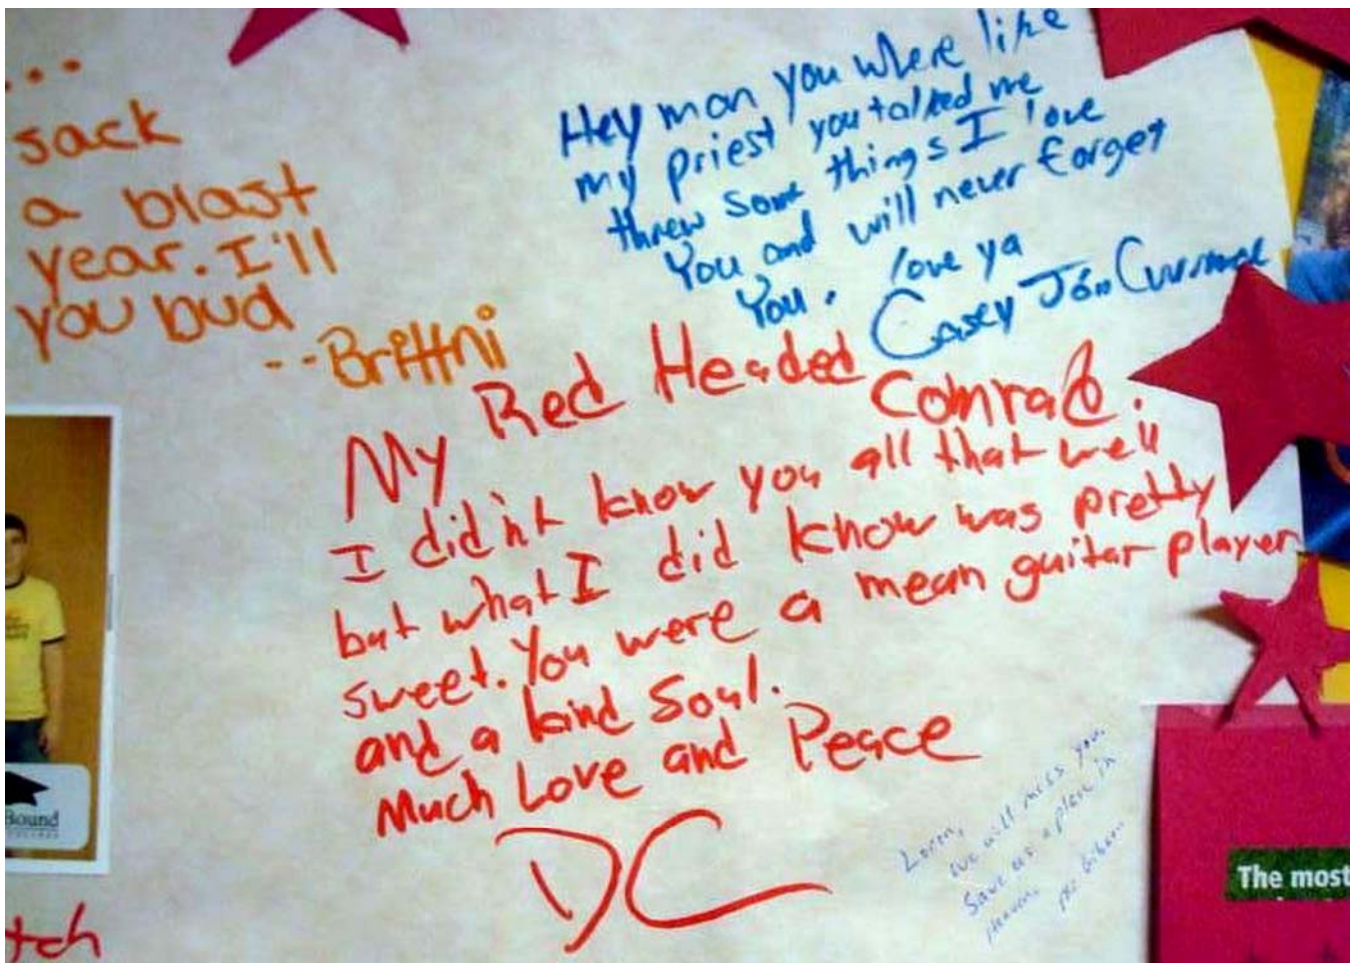 ...
sack
a blast
year. I'll
you bud
--Brittni
Hey man you where like
my priest you talked me
threw some things I love
You and will never forget
You. love ya
Casey Jon
My Red Headed Comrad.
I didn't know you all that well
but what I did know was pretty
sweet. You were a mean guitar player
and a kind Soul.
Much Love and Peace
DC
Loren,
we will miss you.
Save us a place in
Heaven.
Bound
tch
The most